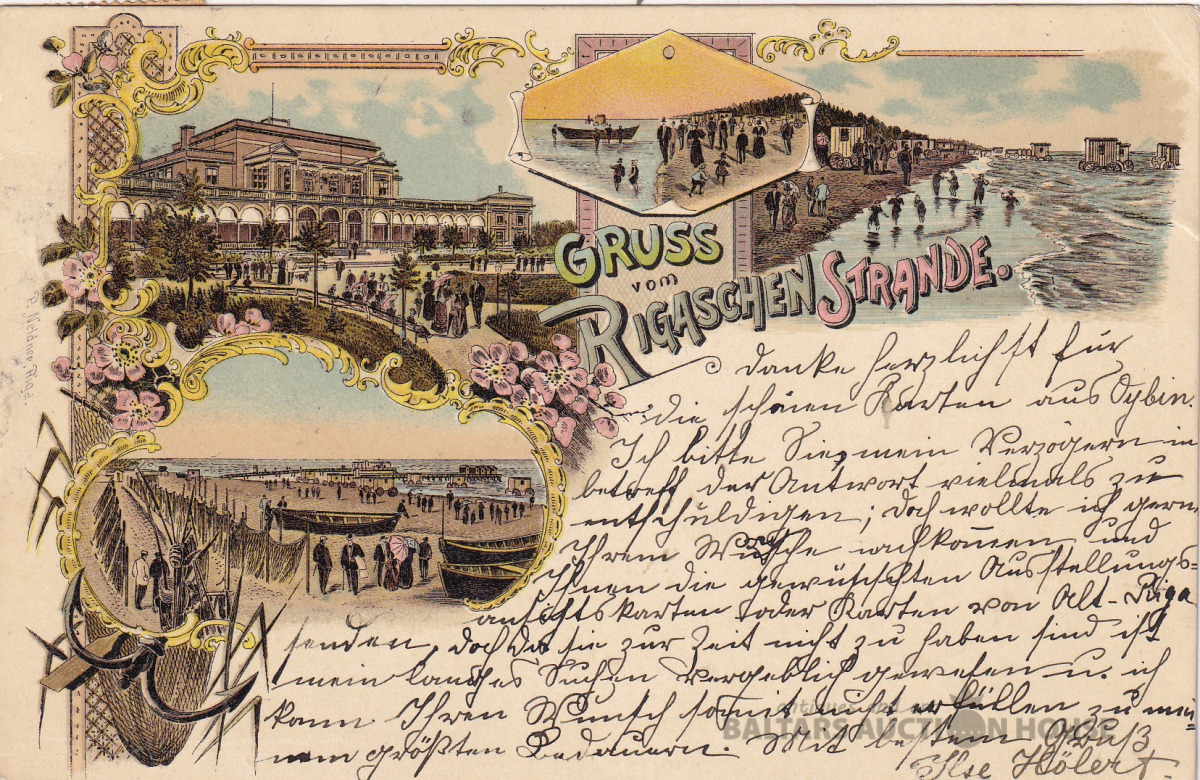 GRUSS
vom
RIGASCHEN STRANDE.
danke herzlichst für
die schönen Karten aus Oybin.
Ich bitte Sie, mein Verzögern in
betreff der Antwort vielmals zu
entschuldigen; doch wollte ich gern
Ihrem Wunsche nachkommen und
Ihnen die gewünschten Ausstellungs-
ansichtskarten oder Karten von Alt-Riga
senden, doch da sie zur Zeit nicht zu haben sind ist
mein langes Suchen vergeblich gewesen u. ich
kann Ihren Wunsch somit nicht erfüllen zu mei=
nem größten Bedauern. Mit bestem Gruß
Ilse Hölert.
BALTARS AUCTION HOUSE